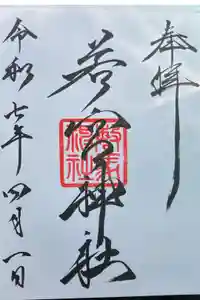 奉拝
若宮神社
令和七年四月一日